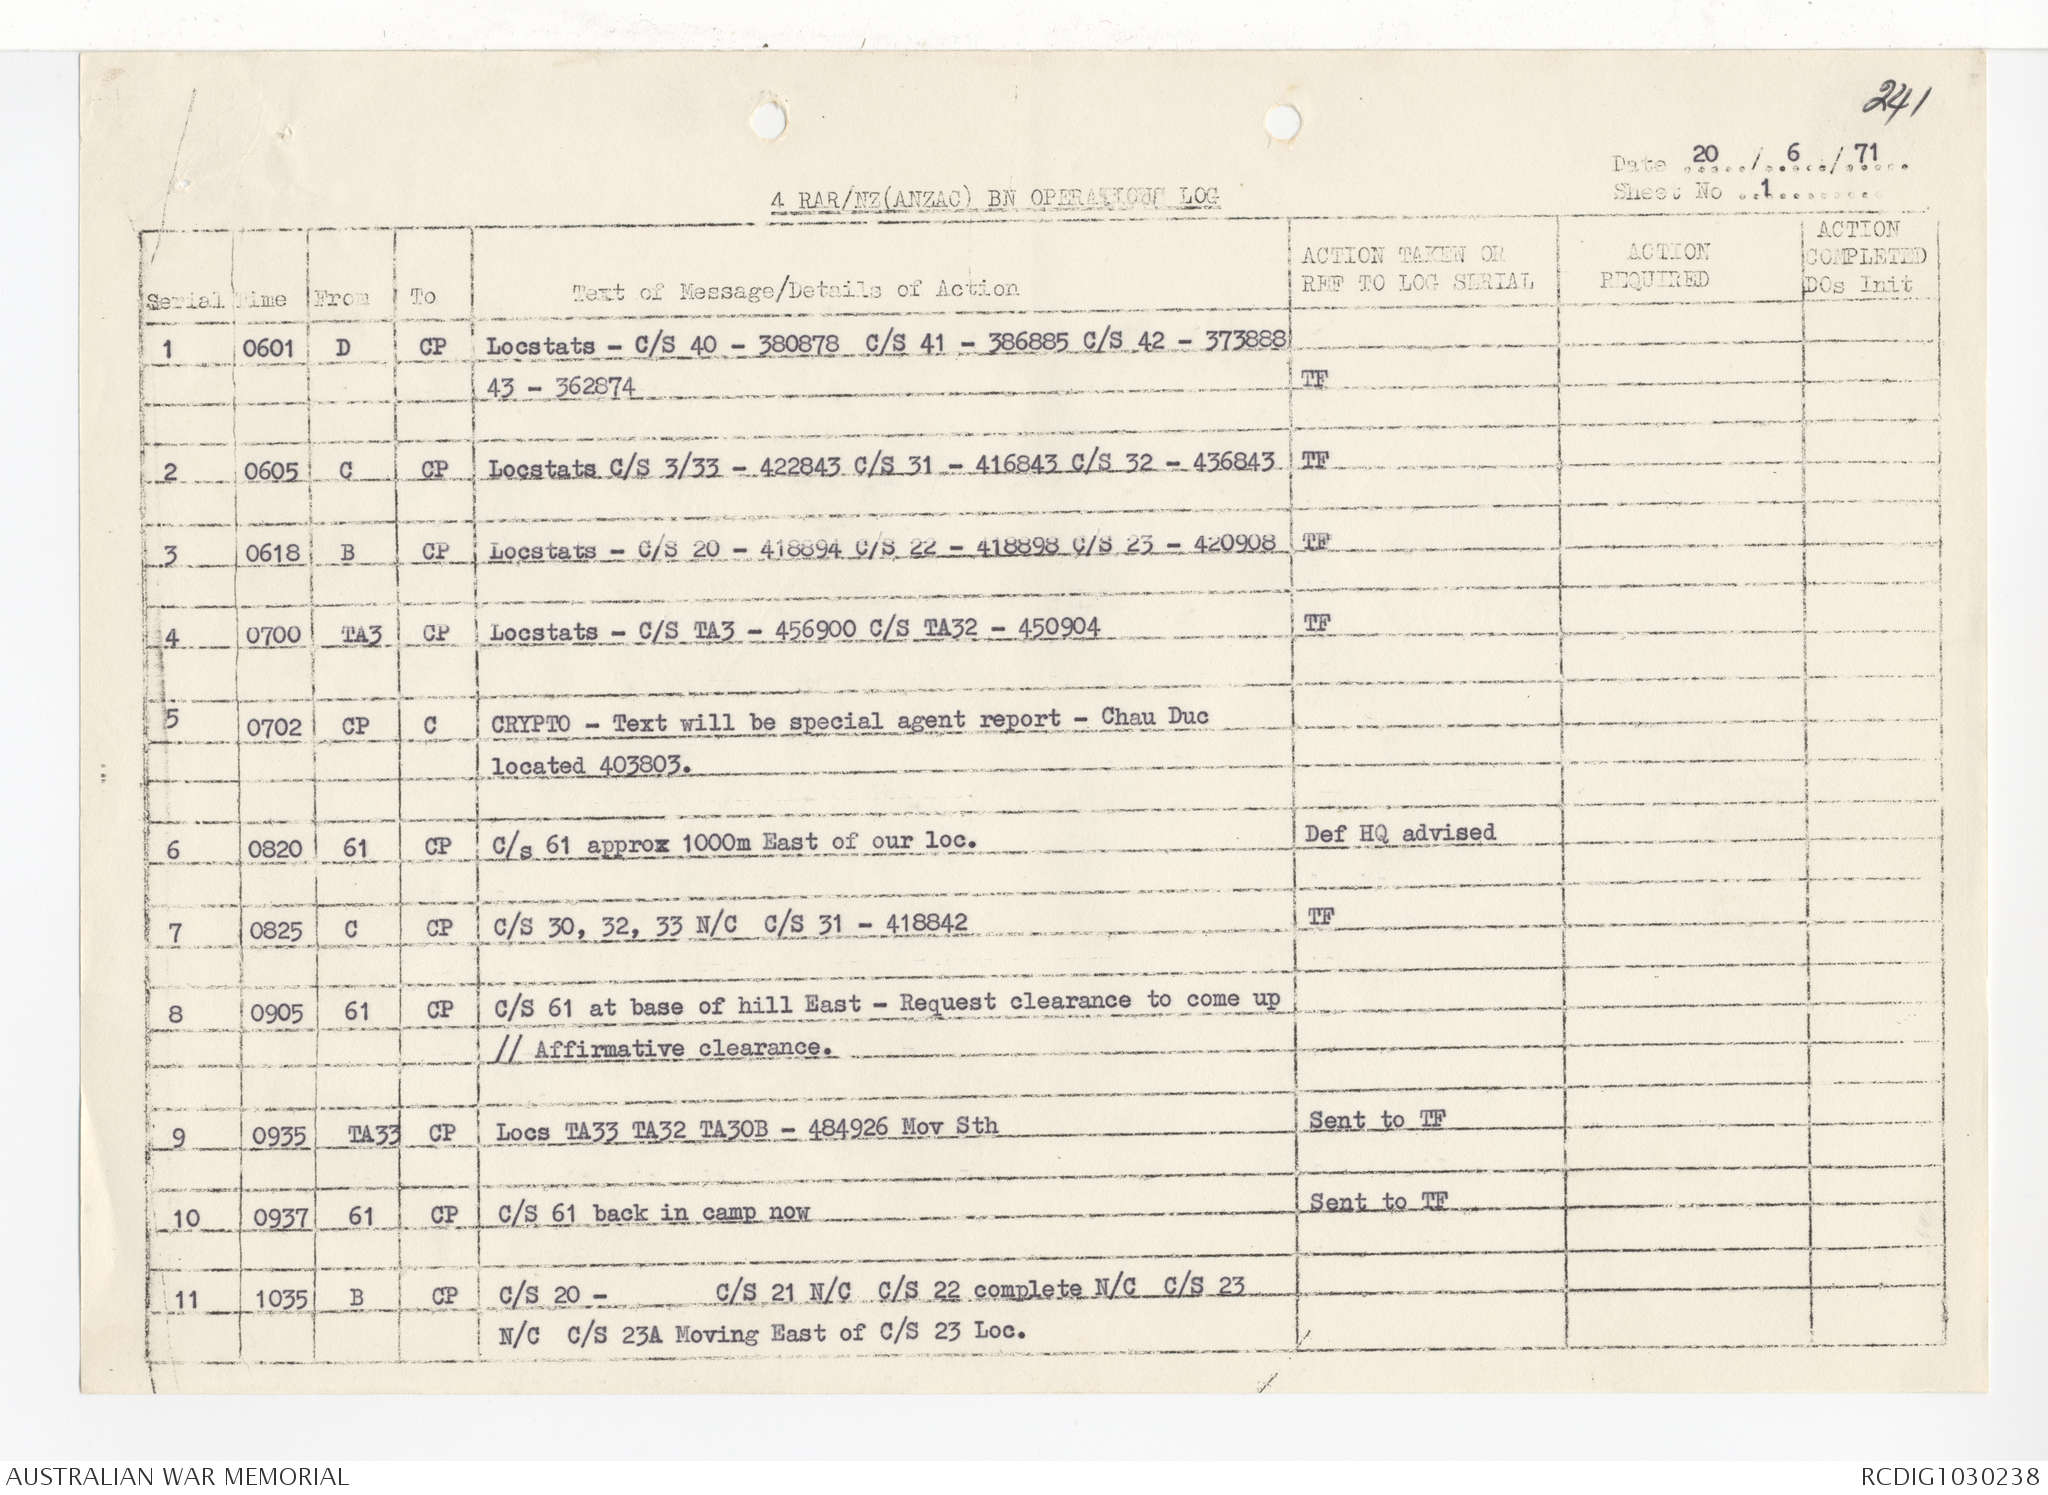 241
Date 20 / 6 / 71
Sheet No 1
4 RAR/NZ(ANZAC) BN OPERATIONS LOG
Serial Time From To Text of Message/Details of Action ACTION TAKEN OR REF TO LOG SERIAL ACTION REQUIRED ACTION COMPLETED DOs Init
1 0601 D CP Locstats - C/S 40 - 380878 C/S 41 - 386885 C/S 42 - 373888
43 - 362874 TF
2 0605 C CP Locstats C/S 3/33 - 422843 C/S 31 - 416843 C/S 32 - 436843 TF
3 0618 B CP Locstats - C/S 20 - 418894 C/S 22 - 418898 C/S 23 - 420908 TF
4 0700 TA3 CP Locstats - C/S TA3 - 456900 C/S TA32 - 450904 TF
5 0702 CP C CRYPTO - Text will be special agent report - Chau Duc
located 403803.
6 0820 61 CP C/s 61 approx 1000m East of our loc. Def HQ advised
7 0825 C CP C/S 30, 32, 33 N/C C/S 31 - 418842 TF
8 0905 61 CP C/S 61 at base of hill East - Request clearance to come up
// Affirmative clearance.
9 0935 TA33 CP Locs TA33 TA32 TA30B - 484926 Mov Sth Sent to TF
10 0937 61 CP C/S 61 back in camp now Sent to TF
11 1035 B CP C/S 20 - C/S 21 N/C C/S 22 complete N/C C/S 23
N/C C/S 23A Moving East of C/S 23 Loc.
AUSTRALIAN WAR MEMORIAL RCDIG1030238